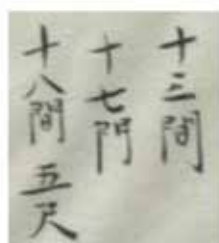 十三間
十七門
十八間五尺